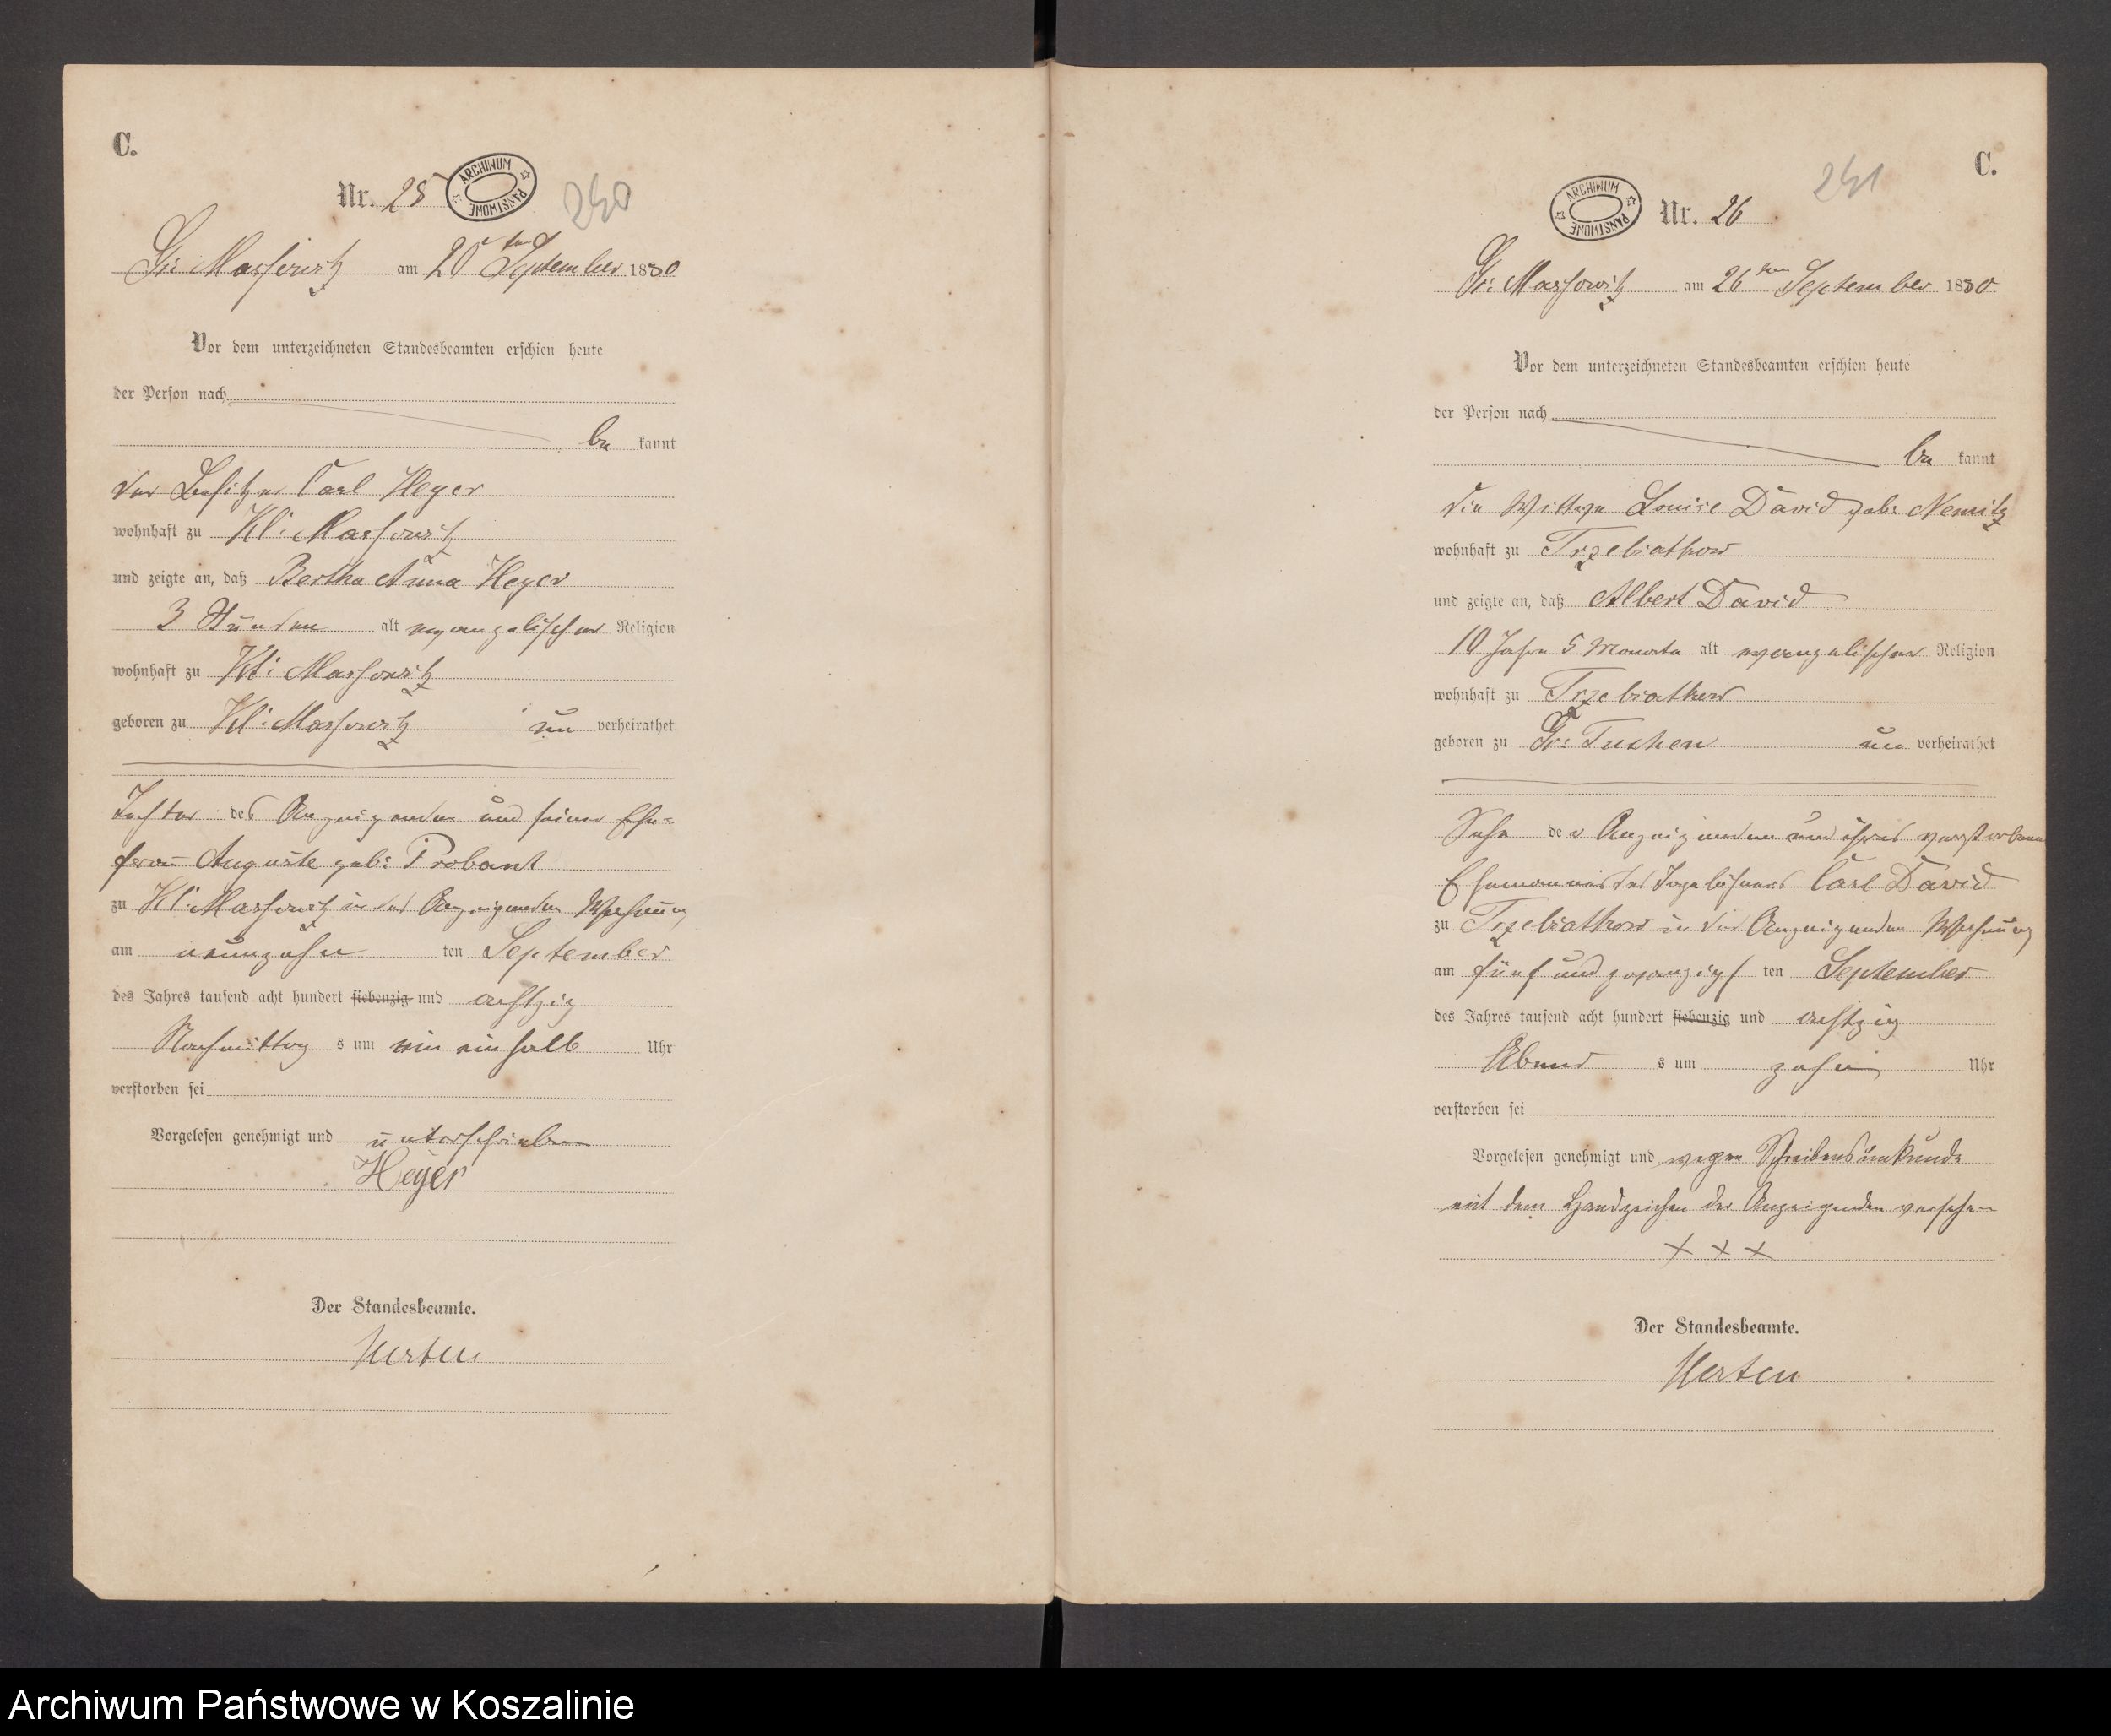 C.
Nr. 25
ARCHIWUM PAŃSTWOWE
240
Gr: Massowitz am 20ten September 1880
Vor dem unterzeichneten Standesbeamten erschien heute
der Person nach
be kannt
der Besitzer Carl Heyer
wohnhaft zu Kl: Massowitz
und zeigte an, daß Bertha Anna Heyer
3 Stunden alt evangelischer Religion
wohnhaft zu Kl: Massowitz
geboren zu Kl: Massowitz un verheirathet
Tochter des Anzeigenden und seiner Ehe=
frau Auguste geb: Probant
zu Kl: Massowitz in des Anzeigenden Wohnung
am neunzehn ten September
des Jahres tausend acht hundert siebenzig und achtzig
Nachmittag s um ein einhalb Uhr
verstorben sei
Vorgelesen genehmigt und unterschrieben
Heyer
Der Standesbeamte.
Merten
C.
241
ARCHIWUM PAŃSTWOWE
Nr. 26
Gr: Massowitz am 26ten September 1880
Vor dem unterzeichneten Standesbeamten erschien heute
der Person nach
be kannt
die Wittwe Louise David geb: Nemitz
wohnhaft zu Trzebiatkow
und zeigte an, daß Albert David
10 Jahre 5 Monate alt evangelischer Religion
wohnhaft zu Trzebiatkow
geboren zu Gr: Tuchen un verheirathet
Sohn der Anzeigenden und ihres verstorbenen
Ehemannes des Tagelöhners Carl David
zu Trzebiatkow in der Anzeigenden Wohnung
am fünf und zwanzigs ten September
des Jahres tausend acht hundert siebenzig und achtzig
Abend s um zehn Uhr
verstorben sei
Vorgelesen genehmigt und wegen Schreibensunkunde
mit dem Handzeichen der Anzeigenden versehen
+ + +
Der Standesbeamte.
Merten
Archiwum Państwowe w Koszalinie